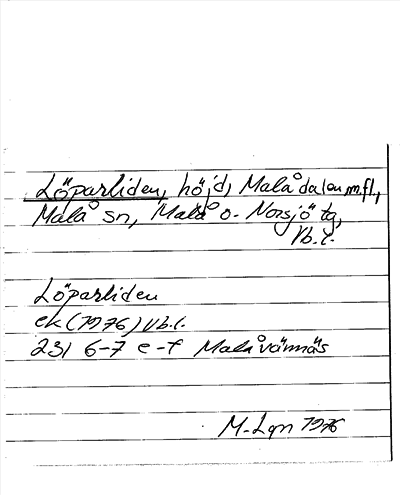 Löparliden, höjd, Malådalen m.fl.,
Malå sn, Malå o. Norsjö tg,
Vb.l.
Löparliden
ek (1976) Vb.l.
23J 6-7 e-f Malåvännäs
M-Lgn 1976